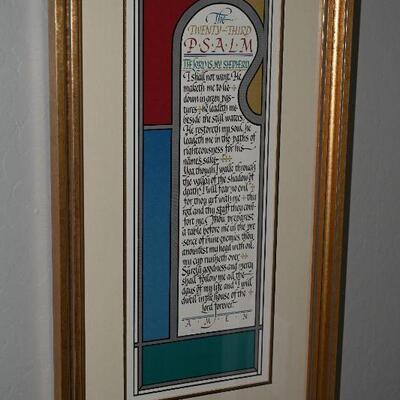 The
TWENTY-THIRD
PSALM
THE LORD IS MY SHEPHERD
I shall not want. He
maketh me to lie
down in green pas-
tures he leadeth me
beside the still waters.
He restoreth my soul, he
leadeth me in the paths of
righteousness for his
name's sake
Yea though I walk through
the valley of the shadow of
death, I will fear no evil
for thou art with me thy
rod and thy staff they com-
fort me. Thou preparest
a table before me in the pre-
sence of mine enemies, thou
anointest my head with oil,
my cup runneth over.
Surely goodness and mercy
shall follow me all the
days of my life and I will
dwell in the house of the
lord forever.
A·M·E·N